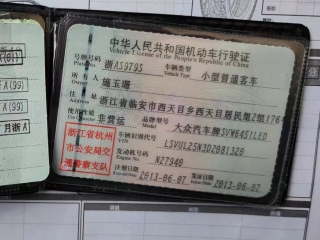 A(01)
A(99)
A(99)
月浙A
中华人民共和国机动车行驶证
Vehicle License of the People's Republic of China
号牌号码 浙A59795 车辆类型 小型普通客车
Plate No. Vehicle Type
所有人 施玉珊
Owner
住址 浙江省临安市西天目乡西天目居民组2组176
Address
使用性质 非营运 品牌型号 大众汽车牌SVW6451LED
Use Character Model
浙江省杭州市公安局交通警察支队
车辆识别代号 LSVUL25N3D2081329
VIN
发动机号码 N27948
Engine No.
注册日期 2013-06-07 发证日期 2013-06-07
Register Date Issue Date